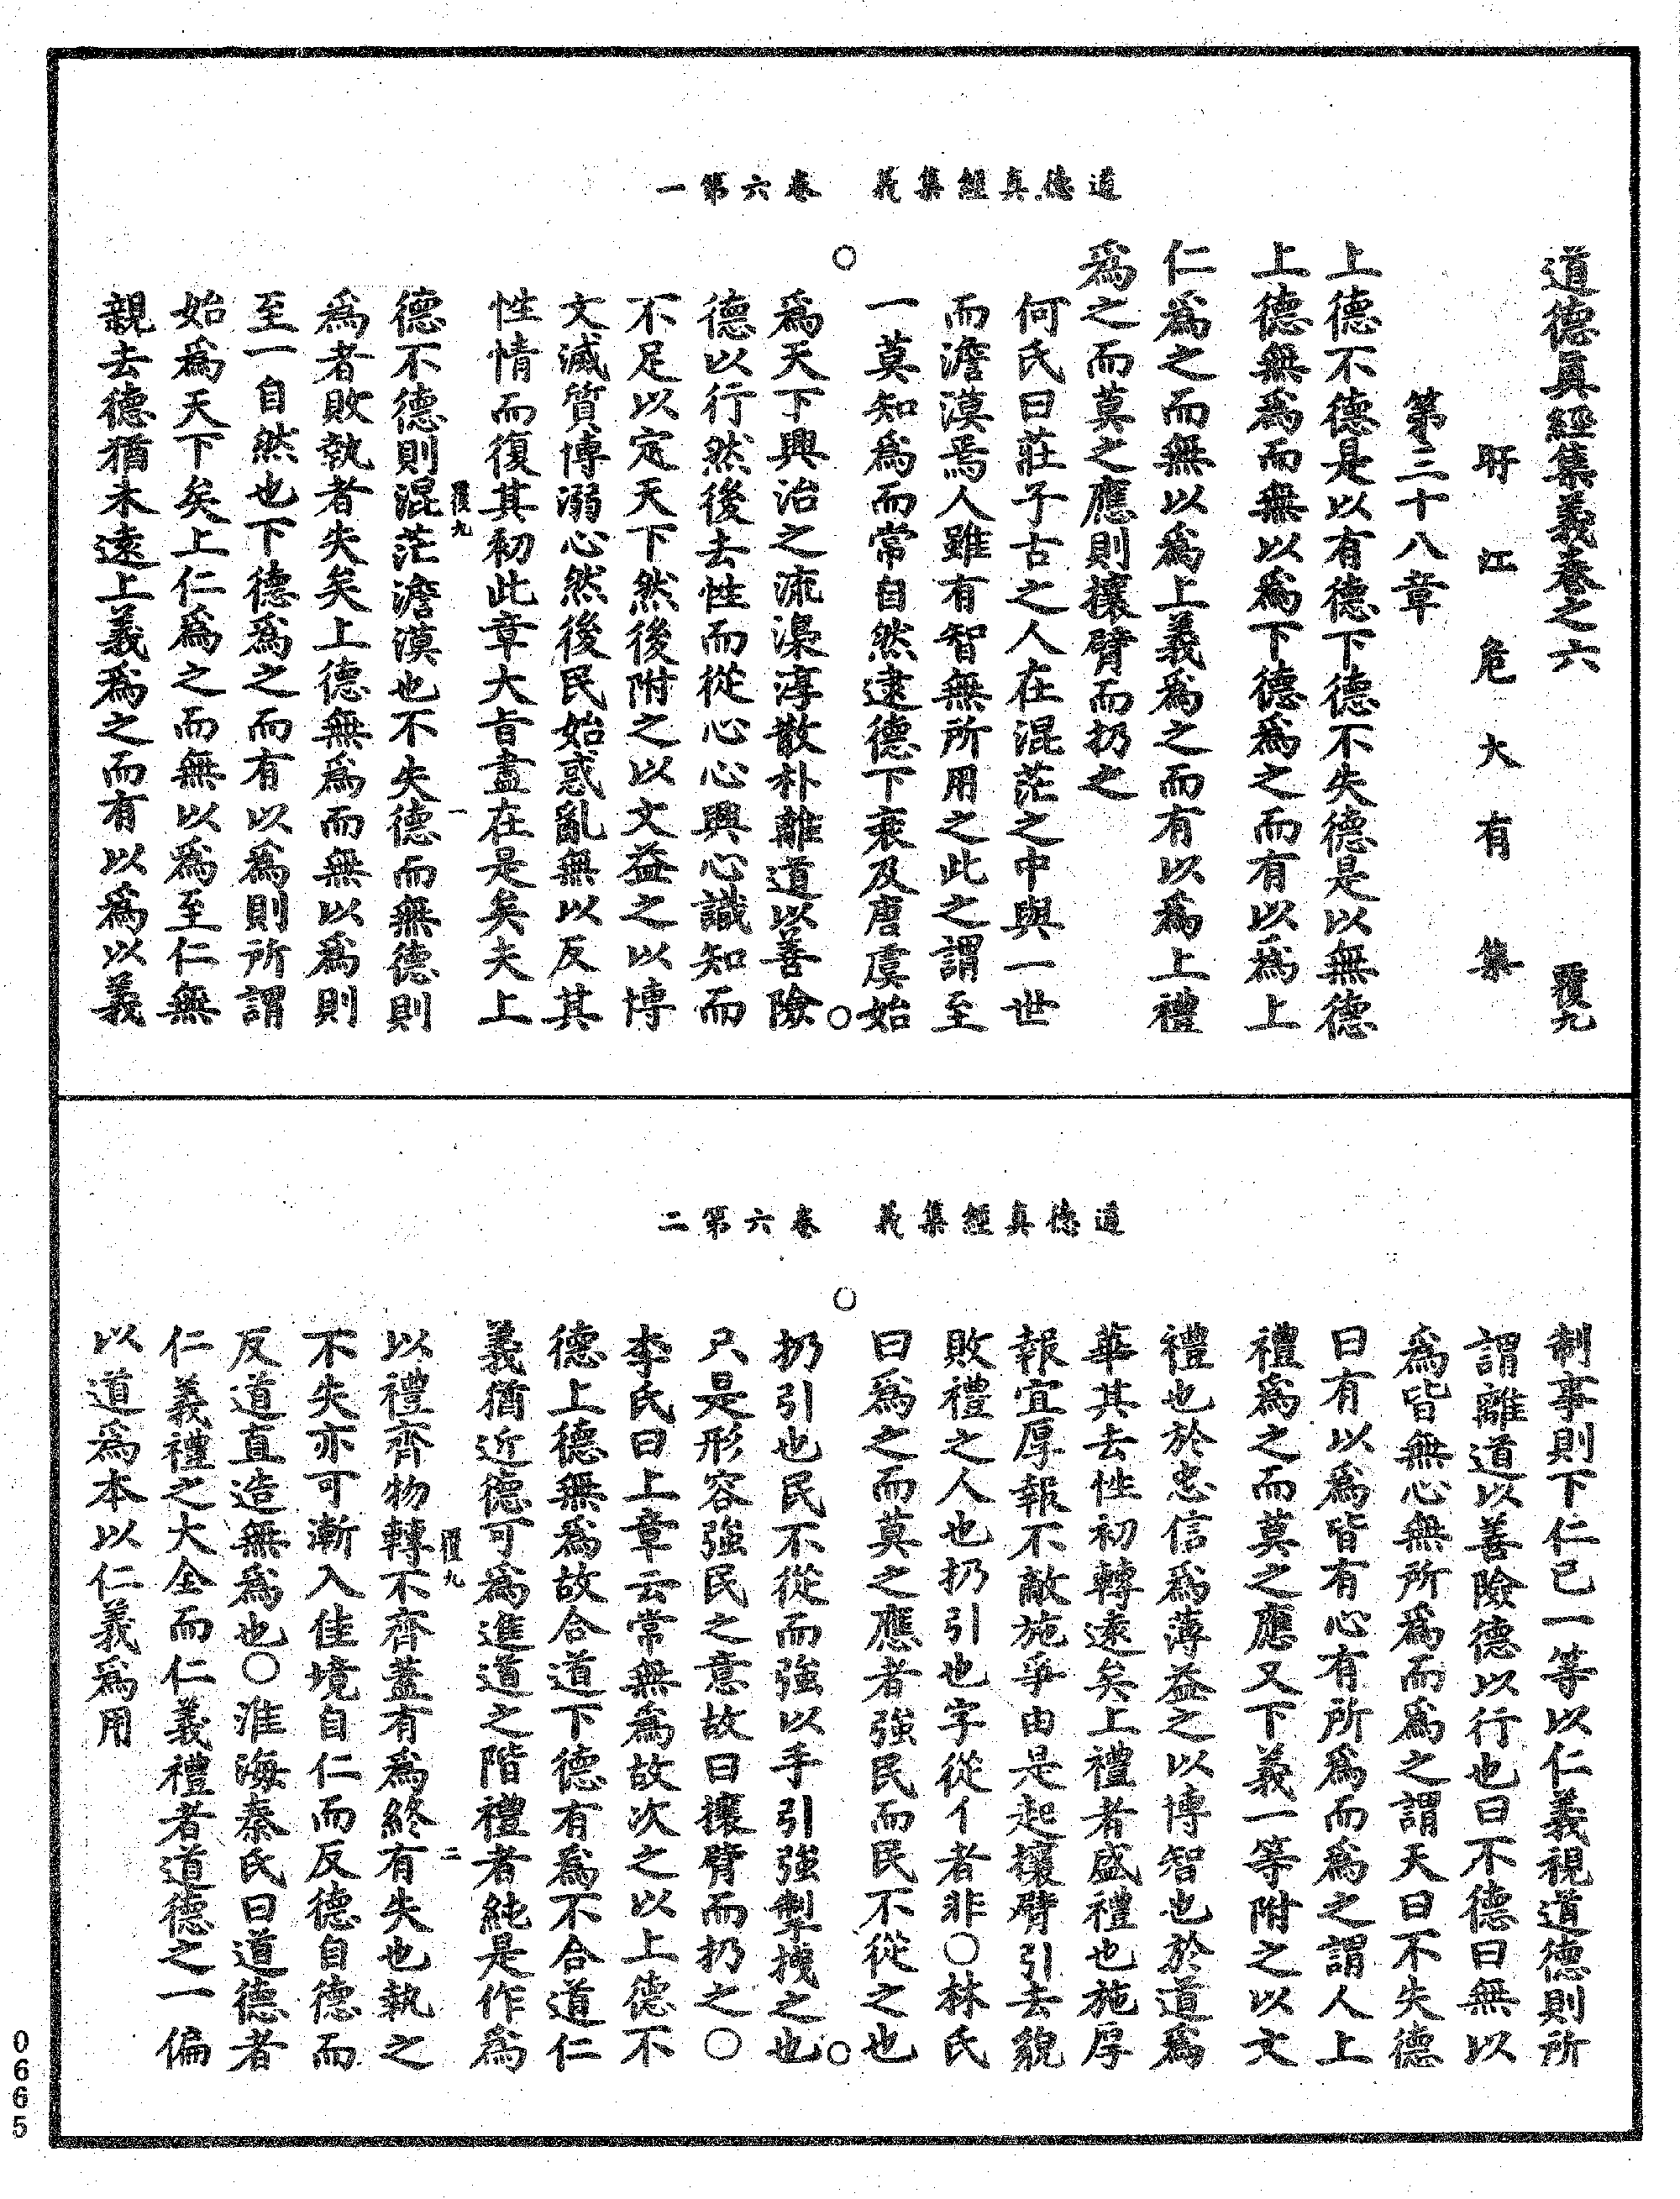 道德真經集義　卷六第一
道德眞經集義卷之六　　覆九
盱江危大有集
第三十八章
上德不德是以有德下德不失德是以無德
上德無爲而無以爲下德爲之而有以爲上
仁爲之而無以爲上義爲之而有以爲上禮
爲之而莫之應則攘臂而扔之
何氏曰莊子古之人在混茫之中與一世
而澹漠焉人雖有智無所用之此之謂至
一莫知爲而常自然逮德下衰及唐虞始
爲天下興治之流澆淳散朴離道以善險
德以行然後去性而從心心與心識知而
不足以定天下然後附之以文益之以博
文滅質博溺心然後民始惑亂無以反其
性情而復其初此章大旨盡在是矣夫上
覆九　一
德不德則混茫澹漠也不失德而無德則
爲者敗執者失矣上德無爲而無以爲則
至一自然也下德爲之而有以爲則所謂
始爲天下矣上仁爲之而無以爲至仁無
親去德猶未遠上義爲之而有以爲以義
道德真經集義　卷六第二
制事則下仁已一等以仁義視道德則所
謂離道以善險德以行也曰不德曰無以
爲皆無心無所爲而爲之謂天曰不失德
曰有以爲皆有心有所爲而爲之謂人上
禮爲之而莫之應又下義一等附之以文
禮也於忠信爲薄益之以博智也於道爲
華其去性初轉遠矣上禮者盛禮也施厚
報宜厚報不敵施爭由是起攘臂引去貌
敗禮之人也扔引也字從亻者非○林氏
曰爲之而莫之應者強民而民不從之也
扔引也民不從而強以手引強掣拽之也
只是形容強民之意故曰攘臂而扔之○
李氏曰上章云常無爲故次之以上德不
德上德無爲故合道下德有爲不合道仁
義猶近德可爲進道之階禮者純是作爲
覆九　二
以禮齊物轉不齊蓋有爲終有失也執之
不失亦可漸入佳境自仁而反德自德而
反道直造無爲也○淮海秦氏曰道德者
仁義禮之大全而仁義禮者道德之一偏
以道爲本以仁義爲用
0665